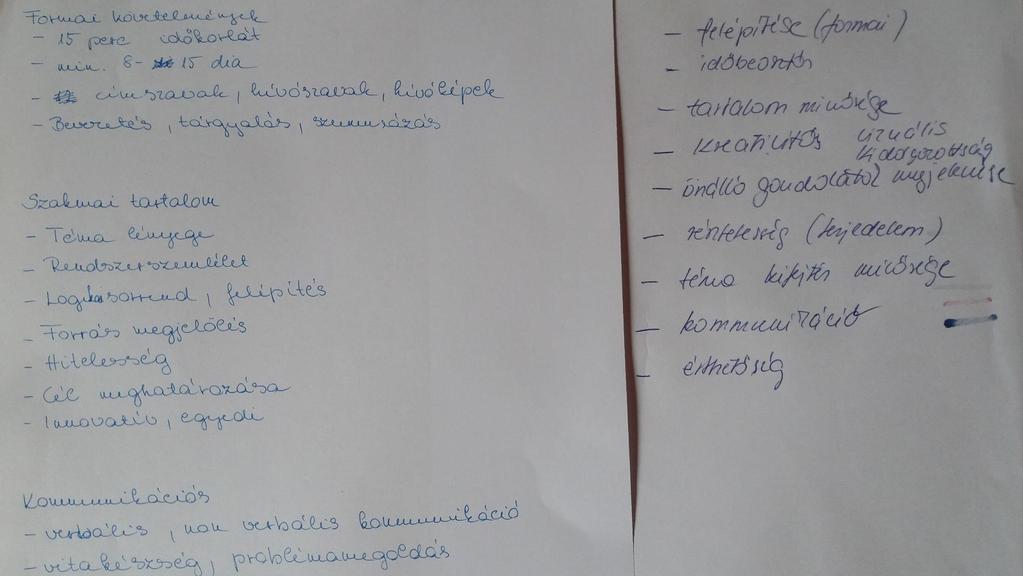 Formai követelmények
- 15 perc időkorlát
- min. 8- 15 dia
- címszavak, hívószavak, hívóképek
- Bevezetés, tárgyalás, szummázás
Szakmai tartalom
- Téma lényege
- Rendszerszemlélet
- Logikasorrend, felépítés
- Forrás megjelölés
- Hitelesség
- Cél meghatározása
- Innovatív, egyedi
Kommunikációs
- verbális, non verbális kommunikáció
- vitakészség, problémamegoldás
- felépítése (formai)
- időbeosztás
- tartalom minősége
- kreativitás vizuális
kidolgozottság
- önálló gondolatok megjelenése
- (terjedelem)
- téma kifejtés minősége
- kommunikáció
- érthetőség